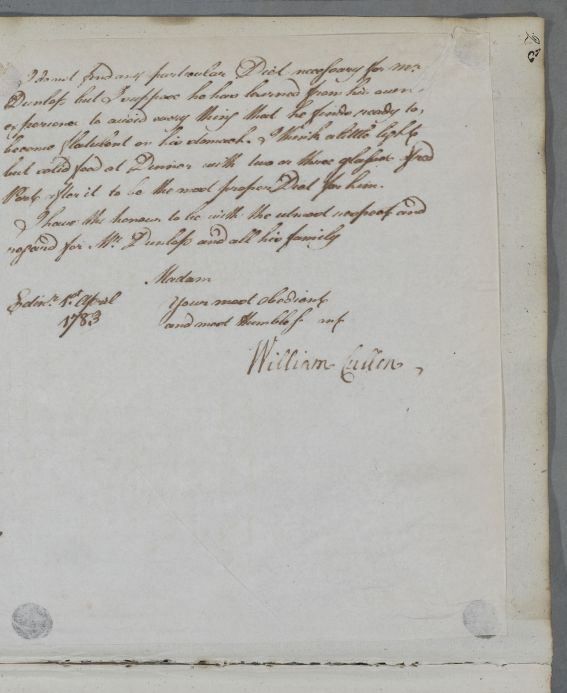 I do not find any particular Diet necessary for Mr.
Dunlop but I suppose he has learned from his own
experience to avoid every thing that he finds ready to
become flatulent on his stomach. I think a little light
but solid food at Dinner with two or three glasses of red
Port after it to be the most proper Diet for him.
I have the honour to be with the utmost respect and
regard for Mr. Dunlop and all his family
Madam
Your most obedient
and most humble
Edinr. 1st April
1783
William Cullen